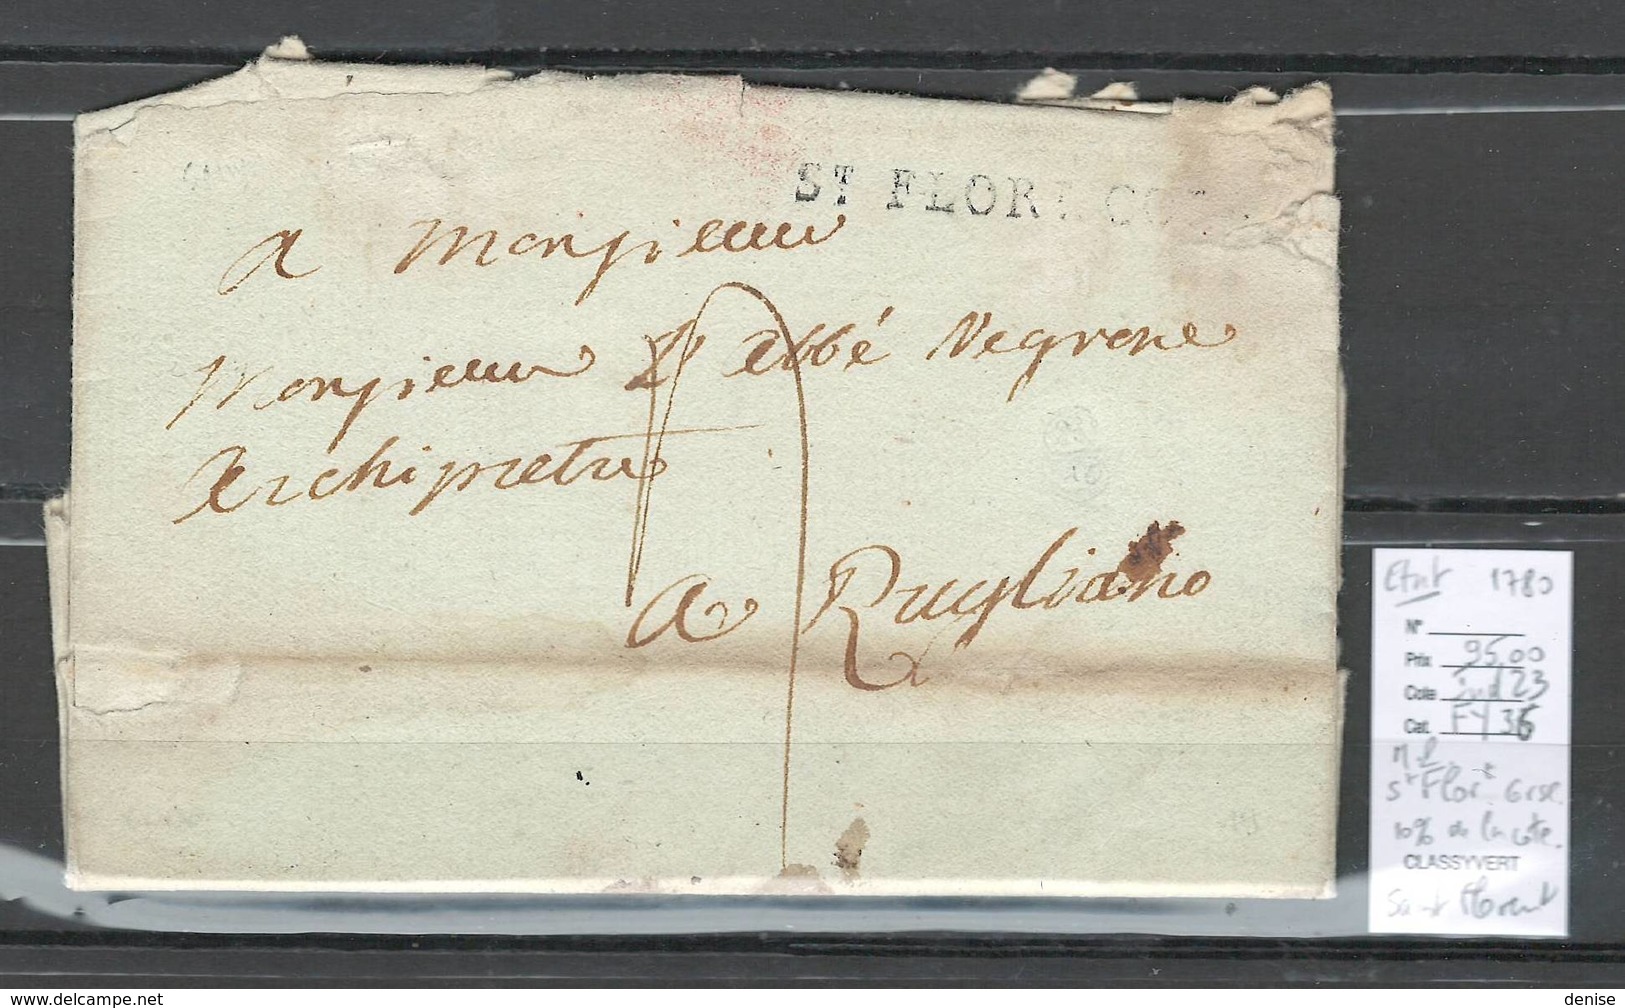 ST FLOR. CO
a Monsieur
Monsieur L'abbé Negrone
Archipretre
a Rugliano
1780
N°
Prix 95,00
Cote Ind 23
Cat. FY 36
St Flor. Corse.
10% de la cote.
CLASSYVERT
Saint Florent
www.delcampe.net
denise